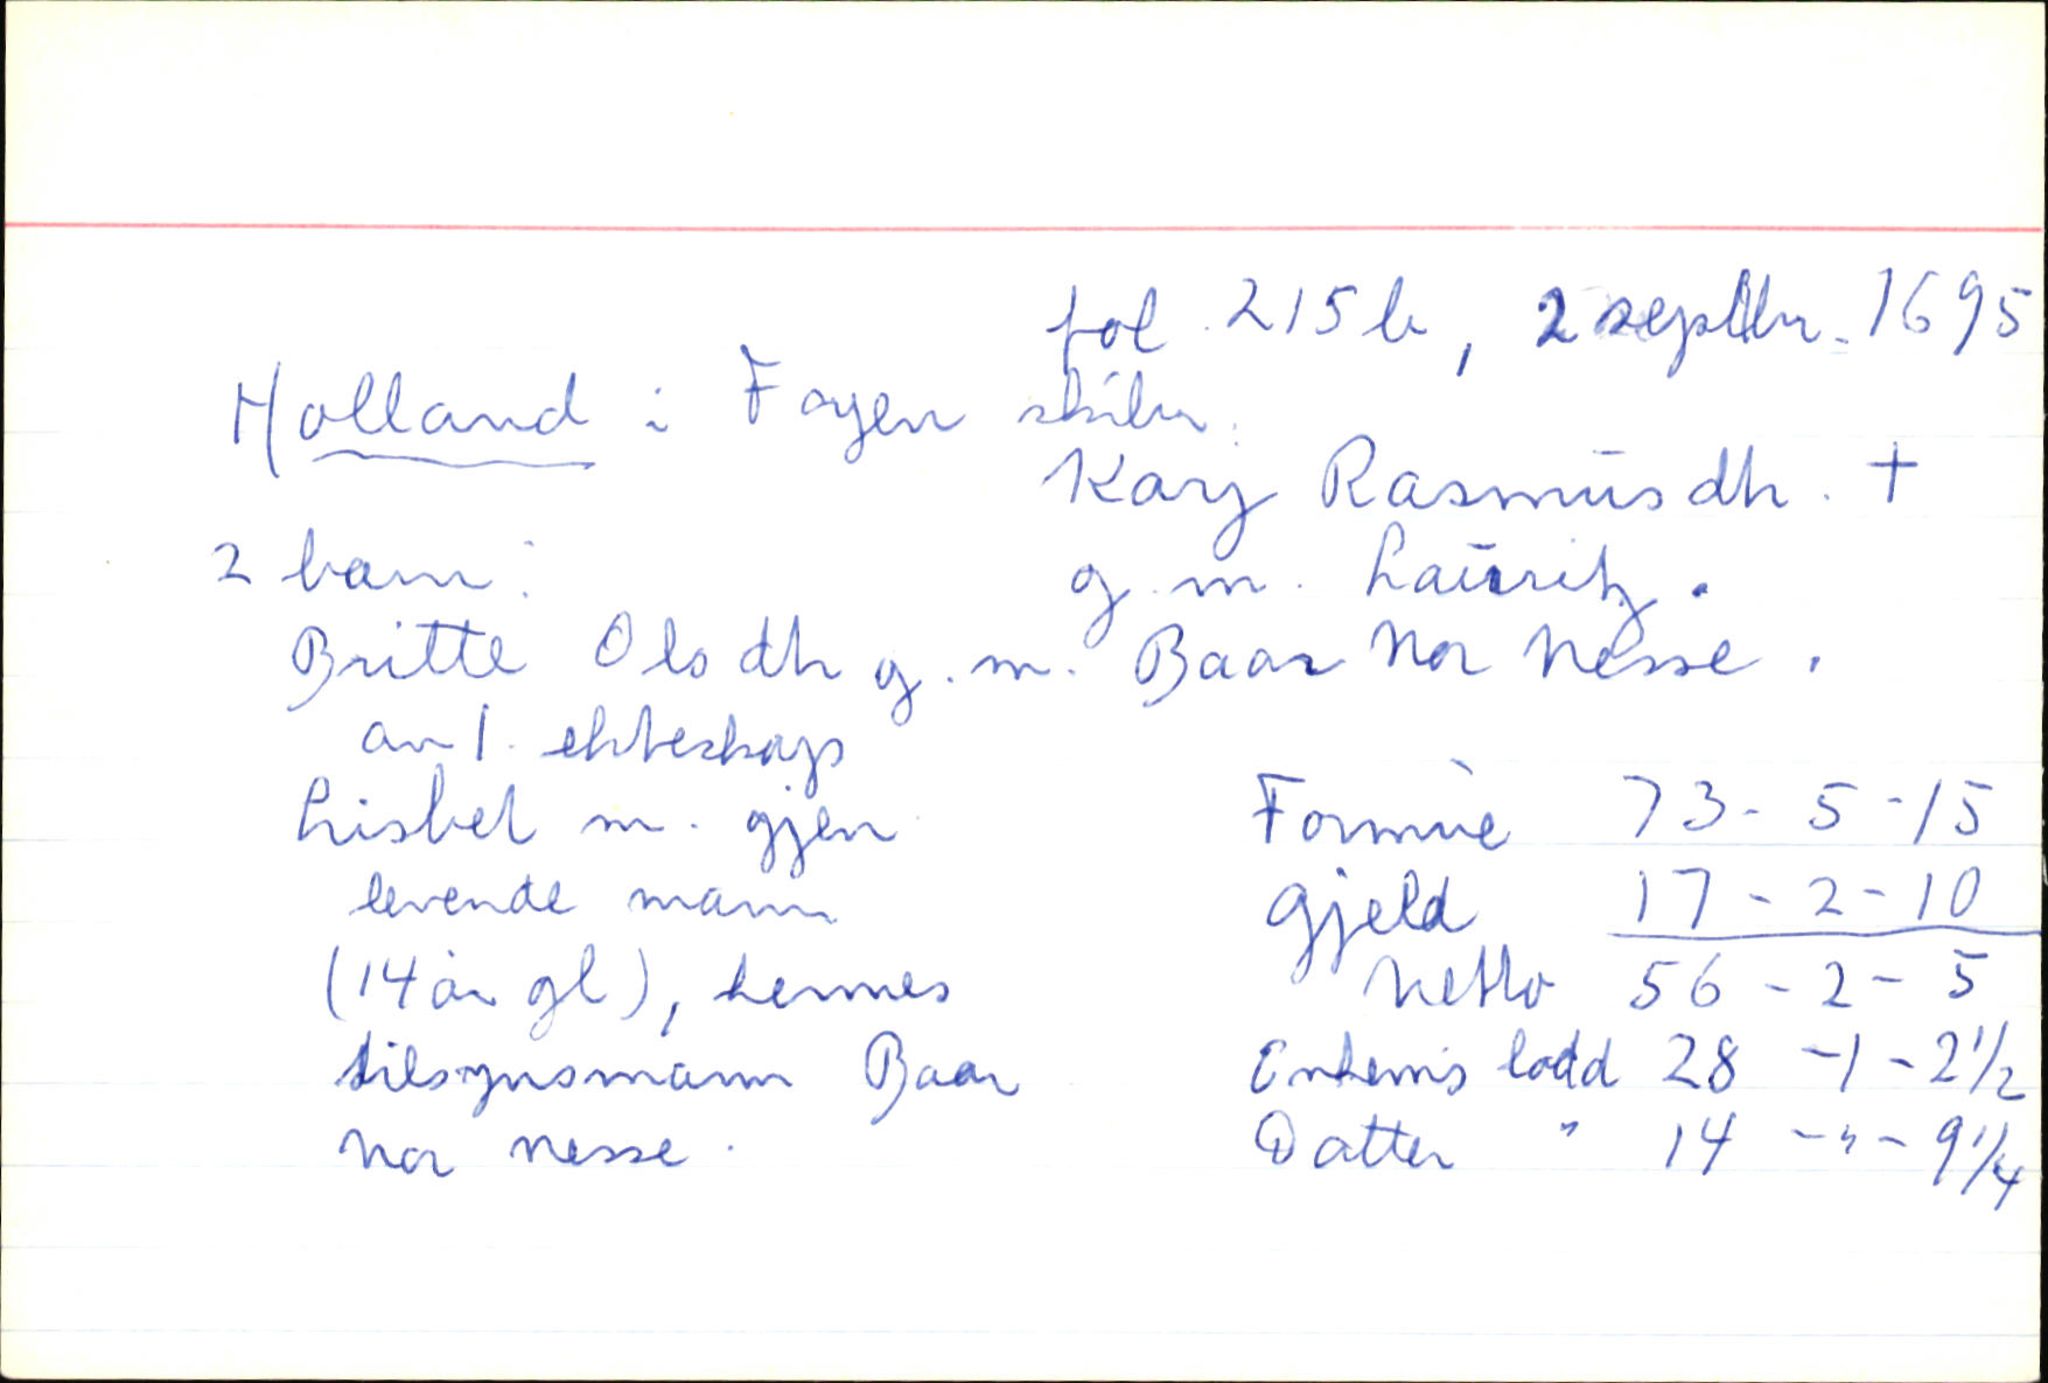 fol. 215b, 2 septbr. 1695
Holland i Fayen skibr.
Karj Rasmusdtr. +
2 barn: g. m. Lauritz.
Britte Olsdtr g. m. Baar Nornesse.
av 1. ekteskap
Lisbet m. gjen
levende mann
(14 år gl), hennes
tilsynsmann Baar
Nornesse.
Formue 73 - 5 - 15
Gjeld 17 - 2 - 10
Netto 56 - 2 - 5
Enkem's lodd 28 - 1 - 2 1/2
Datter " 14 - " - 9 1/4